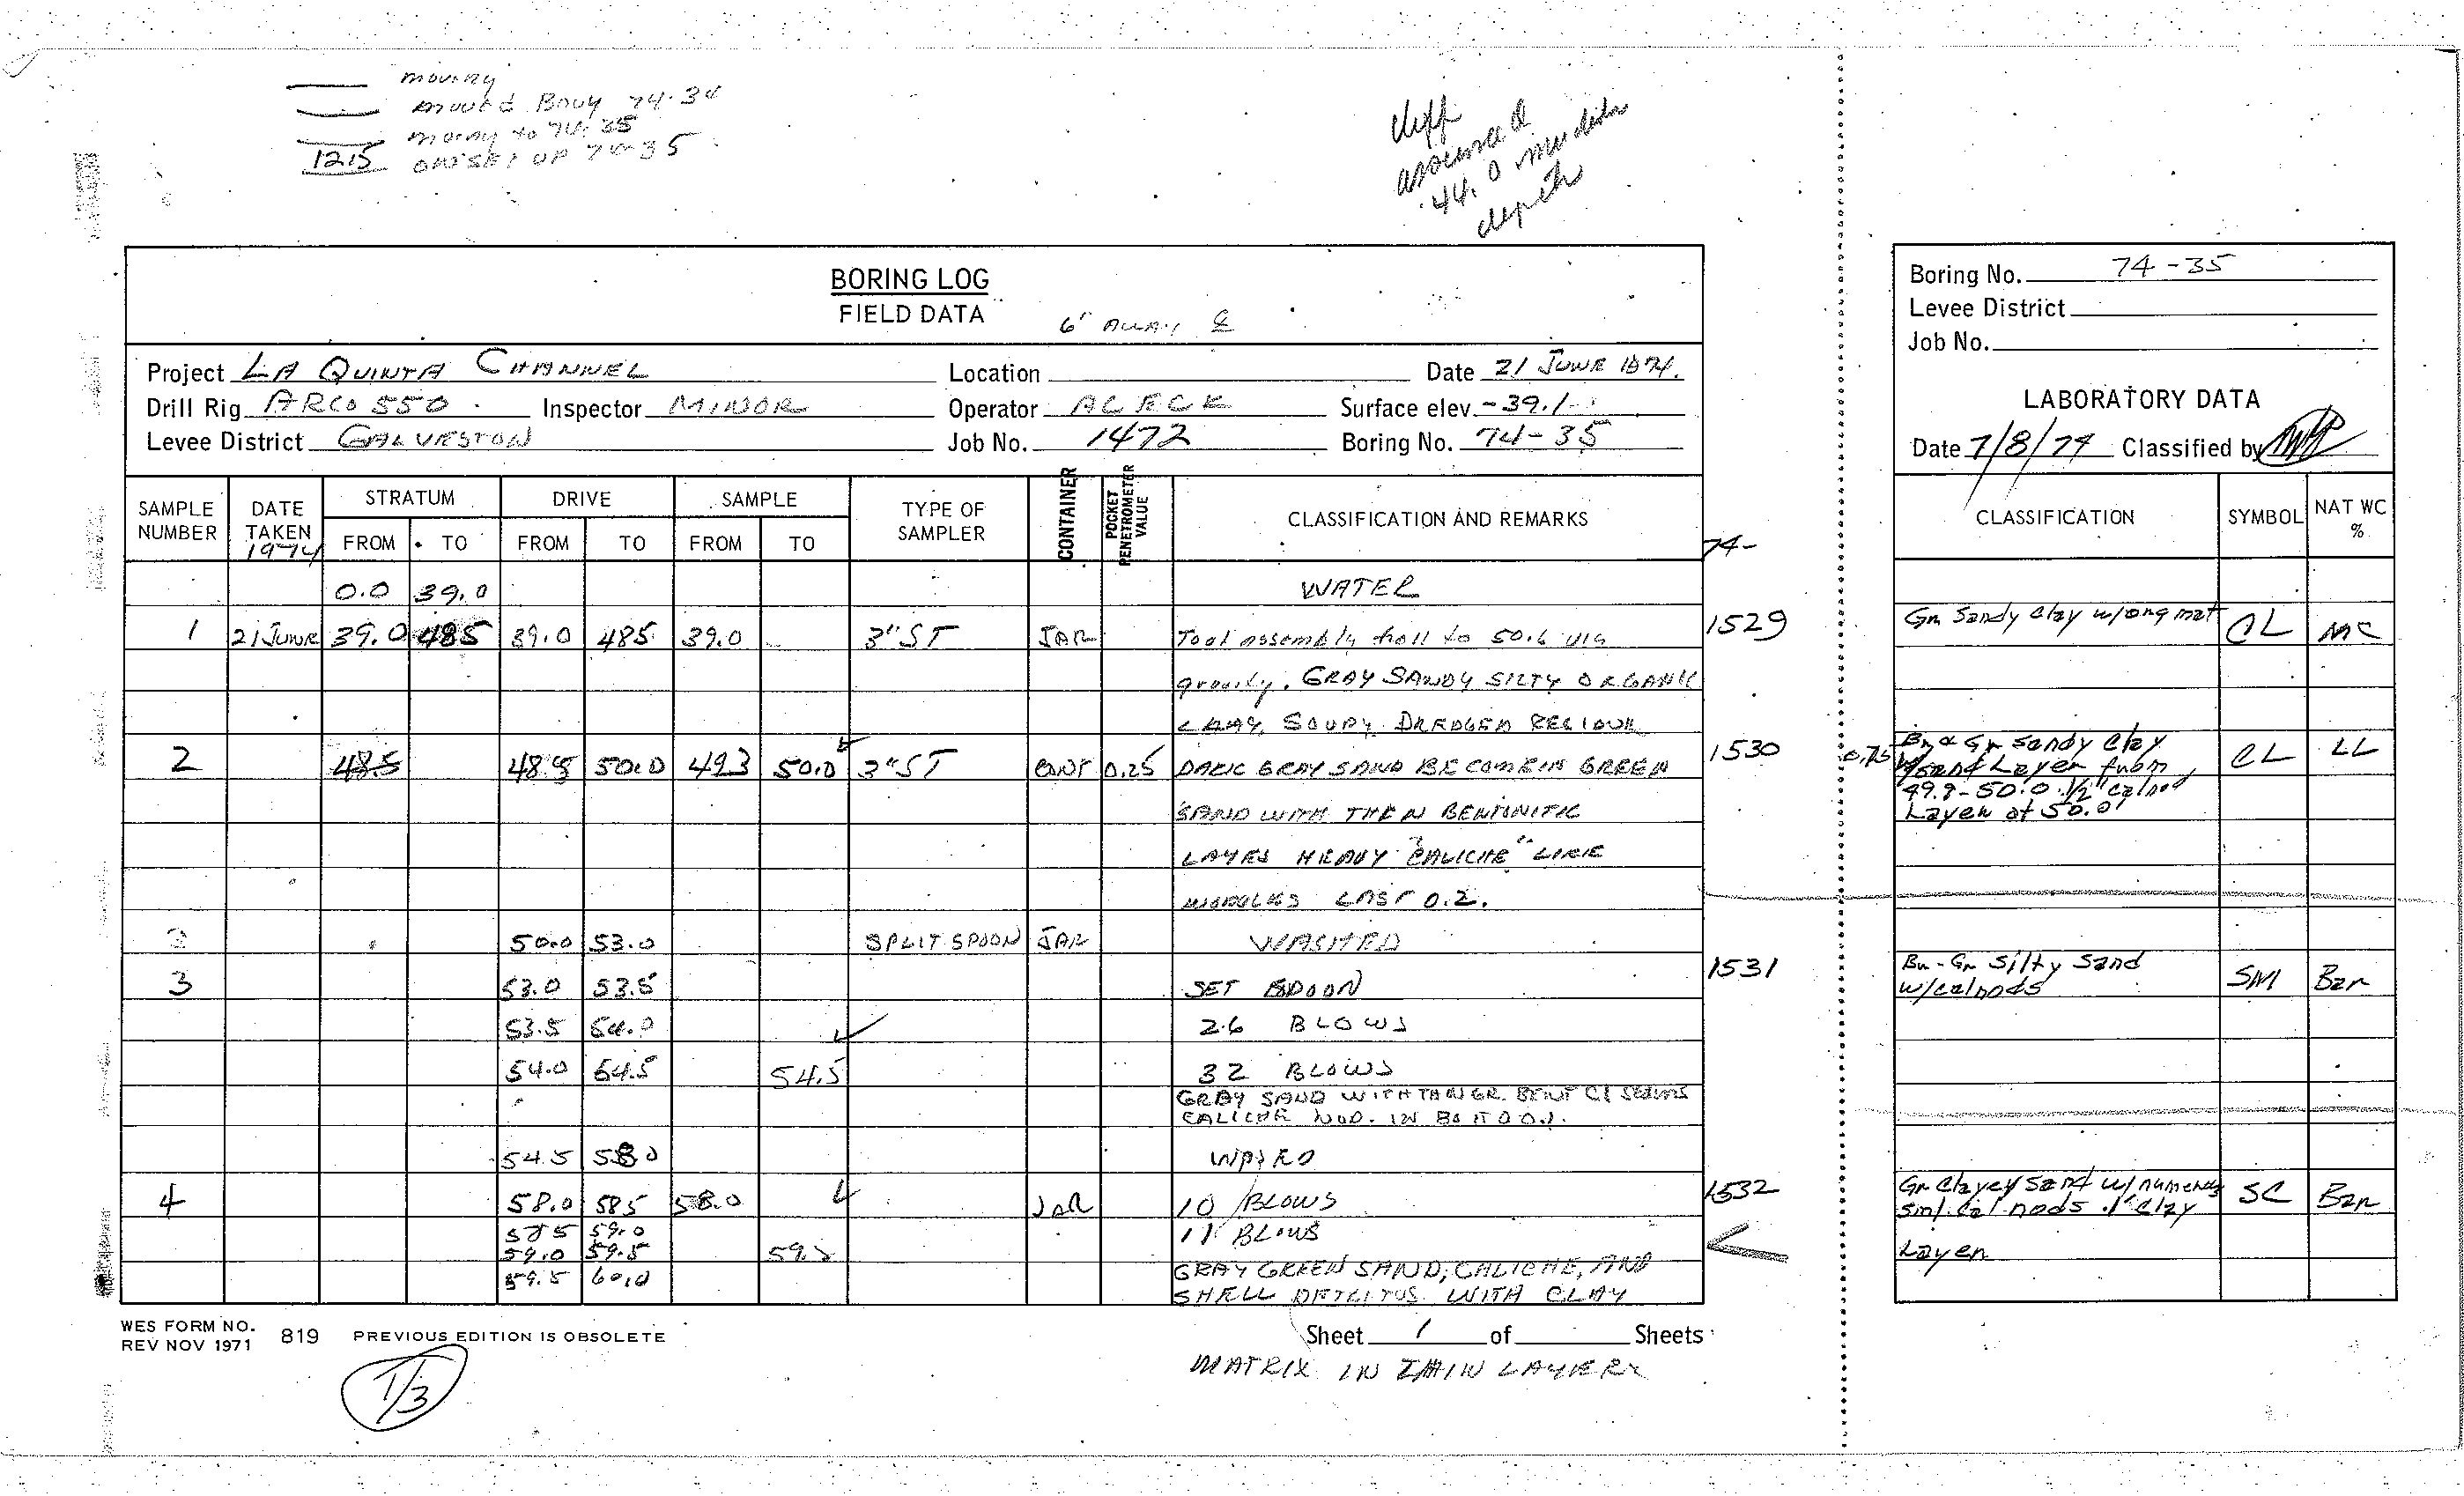 moving
moved Bouy 74-34
moving to 74-35
1215 SET UP 74-35
assumed
44.0 mudline
depth
BORING LOG
FIELD DATA
6' AWAY ℄
Project LA QUINTA CHANNEL Location Date 21 JUNE 1974.
Drill Rig ARCO 550 Inspector MINOR Operator ALECK Surface elev. -39.1
Levee District GALVESTON Job No. 1472 Boring No. 74-35
SAMPLE NUMBER DATE TAKEN 1974 STRATUM FROM TO DRIVE FROM TO SAMPLE FROM TO TYPE OF SAMPLER CONTAINER POCKET PENETROMETER VALUE CLASSIFICATION AND REMARKS
74-
0.0 39.0 WATER
1 21 JUNE 39.0 48.5 39.0 48.5 39.0 3"ST JAR Tool assembly fell to 50.6 via 1529
gravity. GRAY SANDY SILTY ORGANIC
CLAY, SOUPY. DREDGED RESIDUE
2 48.5 48.5 50.0 49.3 50.0 3"ST CONT 0.25 DARK GRAY SAND BECOMEIN GREEN 1530
SAND WITH THEN BENTONITIC
LAYES HEAVY "CALICHE" LIKE
NODULES LAST 0.2.
50.0 53.0 SPLIT SPOON JAR WASHED
3 53.0 53.5 SET SPOON 1531
53.5 54.0 26 BLOWS
54.0 54.5 54.5 32 BLOWS
GRAY SAND WITH THIN GR. BENT Cl SEAMS
CALICHE NOD. IN BOTTOM
54.5 58.0
4 58.0 58.5 58.0 JAR 10 BLOWS 1532
58.5 59.0 11 BLOWS
59.0 59.5
59.5 60.0 GRAY GREEN SAND, CALICHE, AND
SHELL DETRITUS WITH CLAY
WES FORM NO. 819 PREVIOUS EDITION IS OBSOLETE
REV NOV 1971
Sheet 1 of Sheets
MATRIX IN THIN LAYERS
1/3
Boring No. 74-35
Levee District
Job No.
LABORATORY DATA
Date 7/8/74 Classified by
CLASSIFICATION SYMBOL NAT WC %
Gr Sandy clay w/org mat CL MC
0.75 Br & Gr sandy clay CL LL
w/sand Layer from
49.9-50.0 1/2" calnod
Layer at 50.0'
Br-Gr silty sand SM Bar
w/calnods
Gr clayey sand w/numerous SC Bar
sml. cal nods .1" clay
Layer